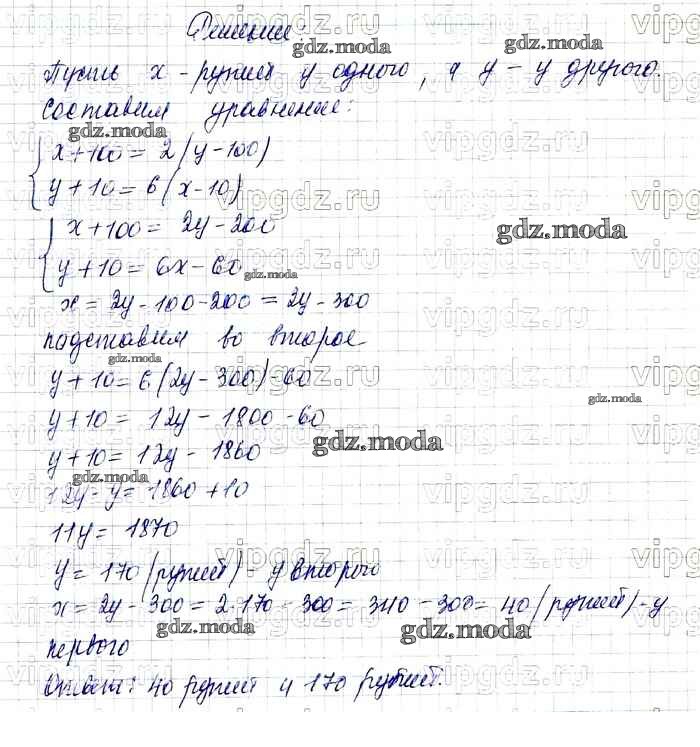 Решение:
Пусть x - рупий у одного, а y - у другого.
Составим уравнение:
x+100 = 2(y-100)
y+10 = 6(x-10)
x+100 = 2y-200
y+10 = 6x-60
x = 2y-100-200 = 2y-300
подставим во второе
y+10 = 6(2y-300)-60
y+10 = 12y-1800-60
y+10 = 12y-1860
12y-y = 1860+10
11y = 1870
y = 170 (рупий) - у второго
x = 2y-300 = 2·170-300 = 340-300 = 40 (рупий) - у
первого
Ответ: 40 рупий и 170 рупий.
gdz.moda
vipgdz.ru